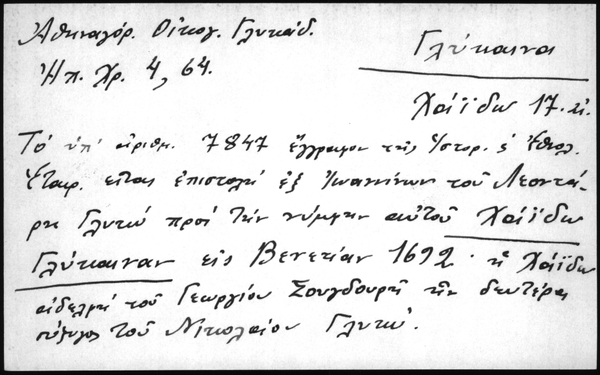 Ἀθηναγόρ. Οἰκογ. Γλυκάδ.
Ἠπ. Χρ. 4, 64.
Γλύκαινα
Χάϊδω 17. αἰ.
Τό ὑπ' ἀριθμ. 7847 ἔγγραφον τῆς Ἱστορ. & Ἐθνολ.
Ἑταιρ. εἶναι ἐπιστολή ἐξ Ἰωαννίνων τοῦ Λεοντά-
ρη Γλυκύ πρός τήν νύμφην αὐτοῦ Χάϊδω
Γλύκαιναν εἰς Βενετίαν 1692. ἡ Χάϊδω
ἀδελφή τοῦ Γεωργίου Σουγδουρῆ τῆς δευτέρας
σύζυγος τοῦ Νικολάου Γλυκύ.